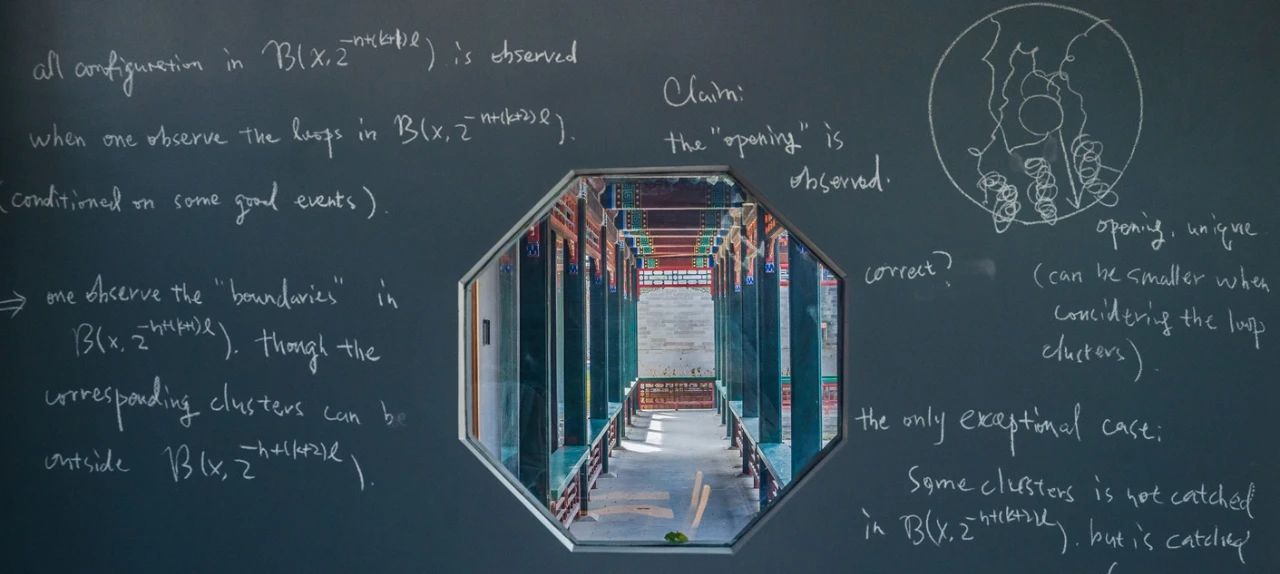 all configuration in B(x, 2^{-n+(k+1)l}) is observed
when one observe the loops in B(x, 2^{-n+(k+2)l}).
(conditioned on some good events).
⇒ one observe the "boundaries" in
B(x, 2^{-n+(k+1)l}). though the
corresponding clusters can be
outside B(x, 2^{-n+(k+2)l}).
Claim:
the "opening" is
observed.
correct?
opening, unique
(can be smaller when
considering the loop
clusters).
the only exceptional case:
Some clusters is not catched
in B(x, 2^{-n+(k+2)l}). but is catched